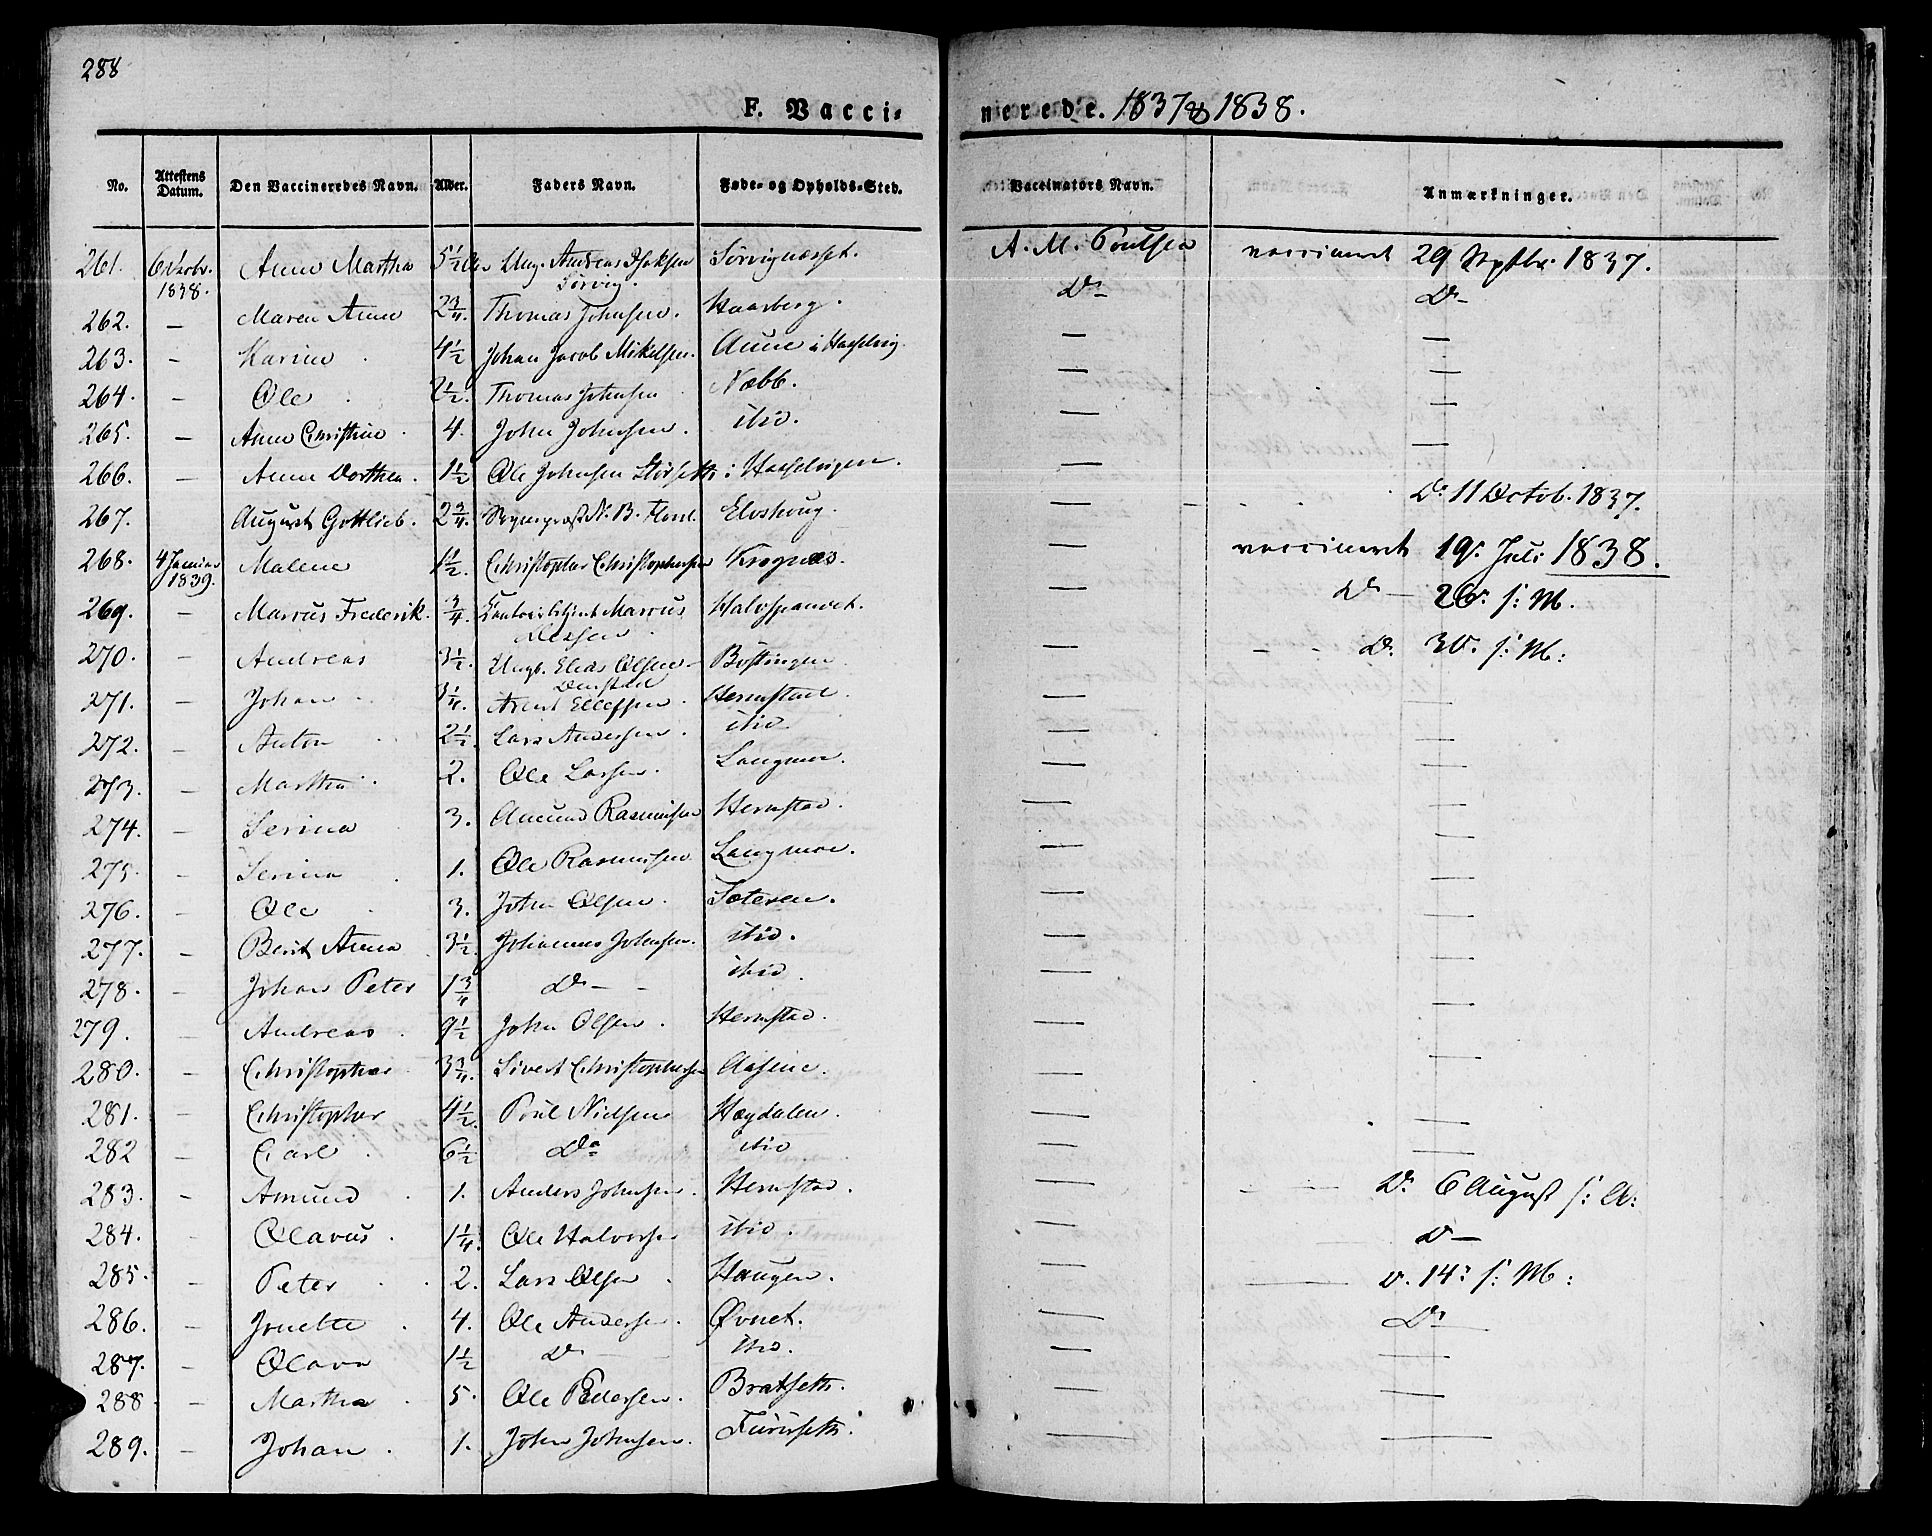 288
F. Vaccinerede. 1837 & 1838.
No. | Attestens Datum. | Den Vaccineredes Navn. | Alder. | Faders Navn. | Føde- og Opholds-Sted. | Vaccinators Navn. | Anmærkninger.
261. | 1838. | Anne Martha | 5 1/2 | Ung. Andreas Isaksen Sørvig. | Sørvignæsset. | A. M. Poulsen | vaccineret 29 Septbr. 1837.
262. | — | Maren Anne | 2 3/4. | Thomas Johnsen. | Haarberg. | Do — | Do —
263. | — | Karine | 4 1/2 | Johan Jacob Mikelsen. | Aune i Hasselvig. | — | —
264. | — | Ole | 2 1/2. | Thomas Johnsen | Næbb. | — | —
265. | — | Anne Christine | 4. | John Johnsen. | ibid. | — | —
266. | — | Anne Dorthea. | 1 1/2 | Ole Johnsen Störseth | i Hasselvigen. | — | —
267. | August Gottlieb. | 2 3/4. | Sogneprest N. B. | — | Do 11 Octob. 1837.
268. | 4 Januar 1839. | Malene | 1 1/2. | Christopher Christophersen | Krognæs. | — | vaccineret 19. Juli 1838.
269. | — | Marcus Frederik. | 3/4. | Marcus | — | Do — 26. s: M.
270. | — | Andreas | 3 1/2. | Ungk. Elias Olsen | — | Do 30. s: M:
271. | — | Johan | 3 1/4. | Arent Ellefsen. | Hermstad. | — | —
272. | — | Anton | 2 1/2. | Lars Andersen. | ibid | — | —
273. | — | Martha. | 2. | Ole Larsen. | Langmoe. | — | —
274. | — | Serina | 3. | Amund Rasmussen | Hermstad. | — | —
275. | — | Serina | 1. | Ole Rasmussen | Langmoe. | — | —
276. | — | Ole | 3. | John Olsen. | Sæteren. | — | —
277. | — | Berit Anna | 3 1/2. | Johannes Johnsen. | ibid. | — | —
278. | — | Johan Peter | 1 3/4 | Do — | ibid. | — | —
279. | — | Andreas. | 9 1/2 | John Olsen. | Hermstad. | — | —
280. | — | Christopher | 3 3/4. | Sivert Christophersen | Aasene. | — | —
281. | — | Christopher | 4 1/2. | Poul Nielsen | Hægdalen. | — | —
282 | — | Carl. | 6 1/2 | Do | ibid | — | —
283. | — | Amund | 1. | Anders Johnsen. | Hermstad. | — | Do 6 August s: A:
284. | — | Olavus. | 1 1/4. | Ole Halvorsen | ibid. | — | Do —
285. | — | Peter | 2. | Lars Olsen. | Haugen. | — | Do 14. s: M:
286. | — | Jonette | 4. | Ole Andersen. | Øvnet. | — | Do —
287. | — | Olava | 1 1/2 | Do — | ibid. | — | —
288 | — | Martha. | 5. | Ole Pedersen. | Bratseth. | — | —
289. | — | Johan. | 1. | John Johnsen. | Furuseth. | — | —